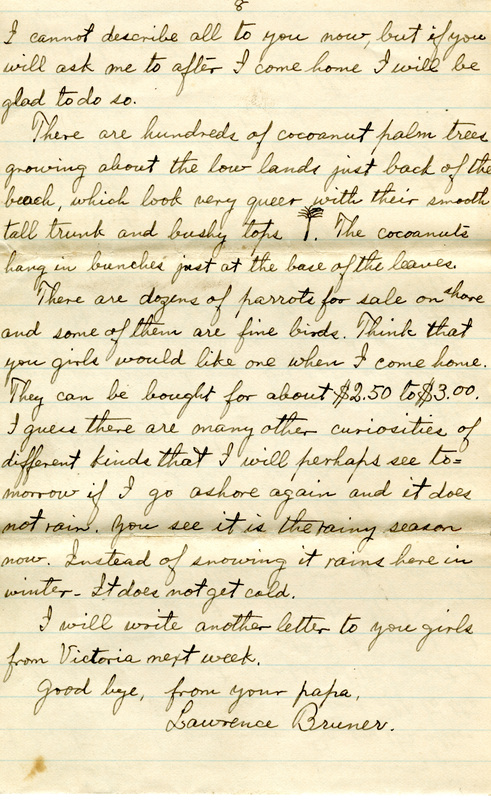 8
I cannot describe all to you now, but if you
will ask me to after I come home I will be
glad to do so.
There are hundreds of cocoanut palm trees
growing about the low lands just back of the
beach, which look very queer with their smooth
tall trunk and bushy tops . The cocoanuts
hang in bunches just at the base of the leaves.
There are dozens of parrots for sale on shore
and some of them are fine birds. Think that
you girls would like one when I come home.
They can be bought for about $2.50 to $3.00.
I guess there are many other curiosities of
different kinds that I will perhaps see to=
morrow if I go ashore again and it does
not rain. You see it is the rainy season
now. Instead of snowing it rains here in
winter - It does not get cold.
I will write another letter to you girls
from Victoria next week.
Good bye, from your papa,
Lawrence Bruner.